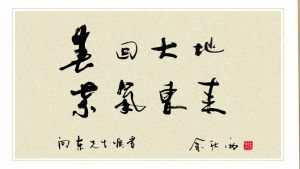 春回大地
紫氣東来
向东先生雅书 余秋雨